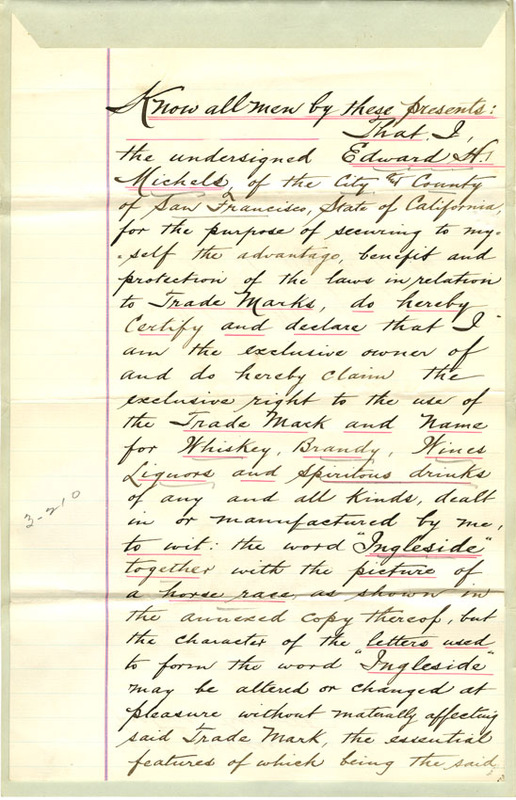 Know all men by these presents:
That I,
the undersigned Edward H.
Michels, of the City & County
of San Francisco, State of California,
for the purpose of securing to my-
-self the advantage, benefit and
protection of the laws in relation
to Trade Marks, do hereby
Certify and declare that I
am the exclusive owner of
and do hereby claim the
exclusive right to the use of
the Trade Mark and Name
for Whiskey, Brandy, Wines
Liquors and Spiritous drinks
of any and all kinds, dealt
in or manufactured by me,
to wit: the word "Ingleside"
together with the picture of
a horse race, as shown in
the annexed copy thereof, but
the character of the letters used
to form the word "Ingleside"
may be altered or changed at
pleasure without materally affecting
said Trade Mark, the essential
features of which being the said
3-210